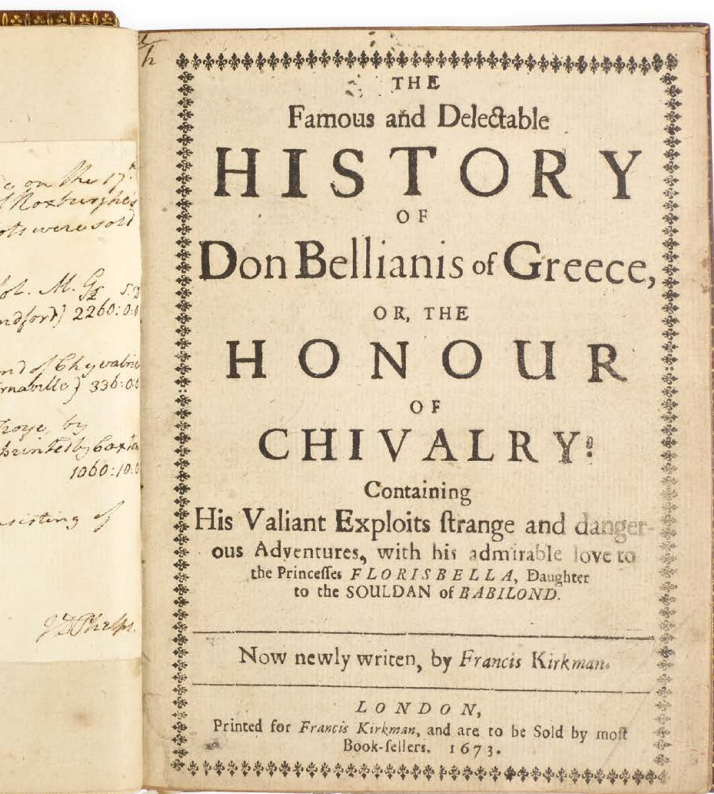 e on the 17th
Roxburghe's
ots were sold
sol. M.
ndford) 2260:0:
nd of Chyvalrie
rnaville) 336:0:
Troye, by
printed by Caxton
1060:10.0
nsisting of
THE
Famous and Delectable
HISTORY
OF
Don Bellianis of Greece,
OR, THE
HONOUR
OF
CHIVALRY:
Containing
His Valiant Exploits ſtrange and danger-
ous Adventures, with his admirable love to
the Princeſſes FLORISBELLA, Daughter
to the SOULDAN of BABILOND.
Now newly writen, by Francis Kirkman.
LONDON,
Printed for Francis Kirkman, and are to be Sold by moſt
Book-ſellers. 1673.